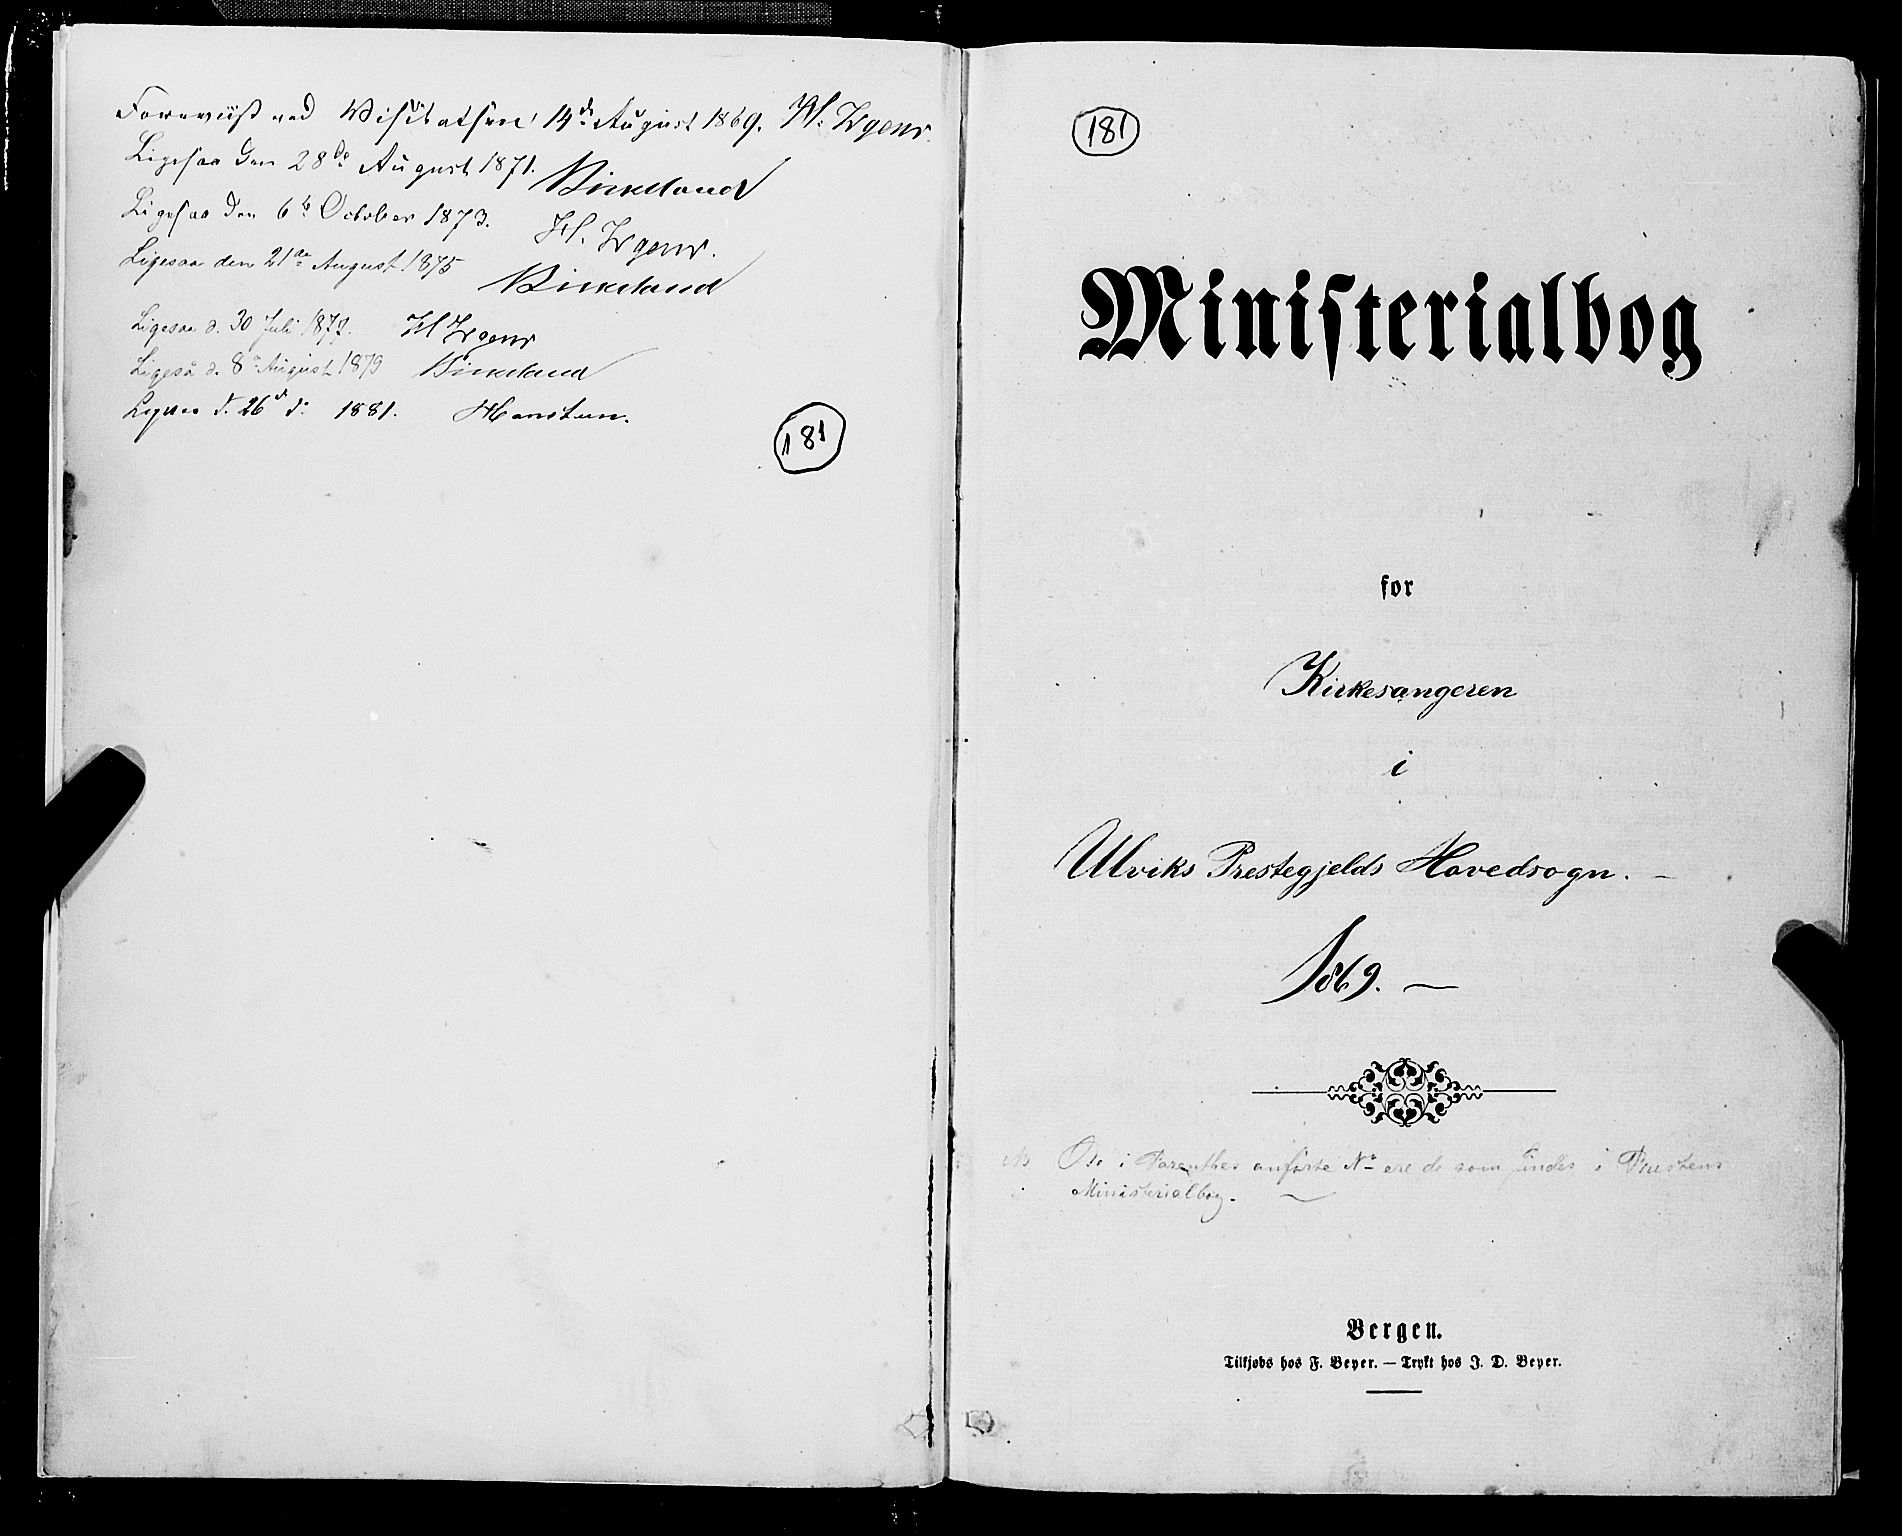 Foreviist ved Visitatsen 14de August 1869. H. Irgens.
Ligesaa den 28de August 1871. Birkeland
Ligesaa den 6te October 1873. H. Irgens.
Ligesaa den 21de August 1875 Birkeland
Ligesaa d. 30 Juli 1877. H Irgens
Ligeså d. 8de August 1879 Birkeland
Ligesaa d. 26de d: 1881. Hansteen.
181
181
Ministerialbog
for
Kirkesangeren
i
Ulviks Prestegjelds Hovedsogn. -
1869. —
NB De i Parenthes anførte No ere de som findes i Prestens
Ministerialbog. —
Bergen.
Tilkjøbs hos F. Beyer. — Trykt hos J. D. Beyer.